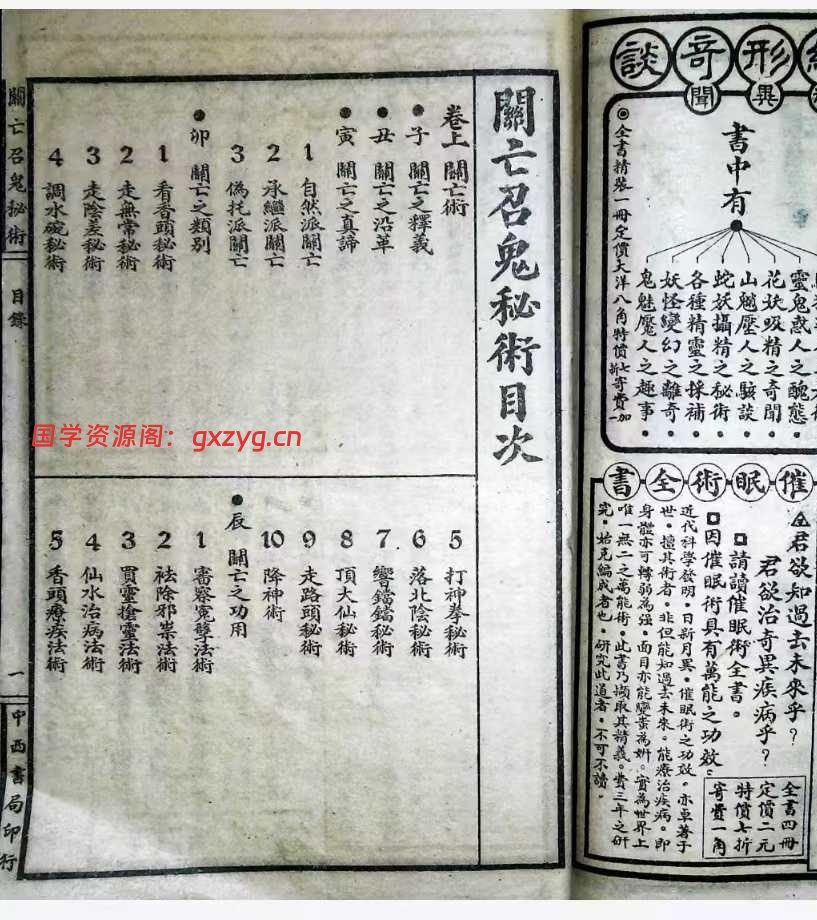 形奇談
異聞
書中有
靈鬼惑人之醜態
花妖吸精之奇聞
山魈壓人之駭談
蛇妖攝精之秘術
各種精靈之採補
妖怪變幻之離奇
鬼魅魘人之趣事
◎全書精裝一冊定價大洋八角特價七折寄費加一
催眠術全書
君欲知過去未來乎？
君欲治奇異疾病乎？
請讀催眠術全書。
因催眠術具有萬能之功效。
近代科學發明。日新月異。催眠術之功效。亦卓著于
世。擅其術者。非但能知過去未來。能療治疾病。即
身體亦可轉弱為强。面目亦能變媸為妍。實為世界上
唯一無二之萬能術。此書乃擷取其精義。費三年之研
究。始克編成者也。研究此道者。不可不讀。
全書四冊
定價二元
特價七折
寄費一角
關亡召鬼秘術目次
卷上 關亡術
●子 關亡之釋義
●丑 關亡之沿革
●寅 關亡之真諦
1 自然派關亡
2 承繼派關亡
3 偽托派關亡
●卯 關亡之類別
1 看香頭秘術
2 走無常秘術
3 走陰差秘術
4 調水碗秘術
5 打神拳秘術
6 落北陰秘術
7 響鐺鐺秘術
8 頂大仙秘術
9 走路頭秘術
10 降神術
●辰 關亡之功用
1 審察冤孽法術
2 祛除邪祟法術
3 買靈搶靈法術
4 仙水治病法術
5 香頭療疾法術
關亡召鬼秘術 目錄 一 中西書局印行
国学资源阁：gxzyg.cn